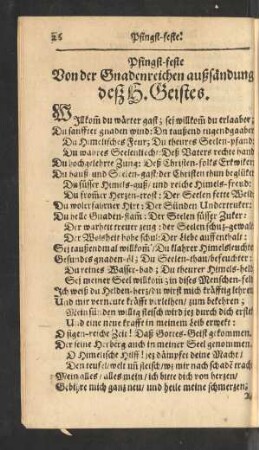 26 Pfingst-feste.
Pfingst-feste
Von der Gnadenreichen außsändung
deß H. Geistes.
Willkom du wärter gast; sei willkom̃ du erlaabor;
Du sanffter gnaden wind: Du tausend tugendgaaber
Du Himelisches Feur; Du theures Seelen-pfand;
Du wahres Seelenliecht: Deß Vaters rechte hand
Du hochgelehrte Zung: Deß Christen-folks
Du hauß und Seelen-gast: der Christen thun beglükt
Du süsser Himels-guß/ und reiche Himels-freud:
Du from̃er Herzen-trost: Der Seelen fette Weid
Du wolerfahrner Hirt: Der Sünden Undertruker:
Du helle Gnaden-flam̃: Der Seelen süsser Zuker:
Der warheit treuer zeug: der Seelen schuz-gewalt
Der Weisheit hohe schul: Der Liebe auffenthalt:
Sei tausendmal willkom̃/ Du klahrer Himelsleuchter
Gesundes gnaden-öl: Du Seelen-thau/befeuchter:
Du reines Wasser-bad; Du theurer Himels-held
Sei meiner Seel willkom̃; in dises Menschen-feld
Ich weiß du Helden-herz/du wirst mich kräfftig lehren
Und mit verneute krafft vorleihen/ zum bekehren,
Mein sündlen willig fleisch wird jez durch dich ersteh
Und eine neue krafft in meinem Leib erwekt:
O sigen-reiche Zeit! Daß Gottes-Geist gekommen.
Der seine Herberg auch in meiner Seel genommen.
O Himelische Hilff! jez dämpfet deine Macht/
Den teufel/ welt uñ fleisch/ wz mir nach schadẽ tracht
Mein alles/ alles mein/ ich bitte dich von herzen/
Gebähre mich ganz neu/ und heile meine schmerzen;